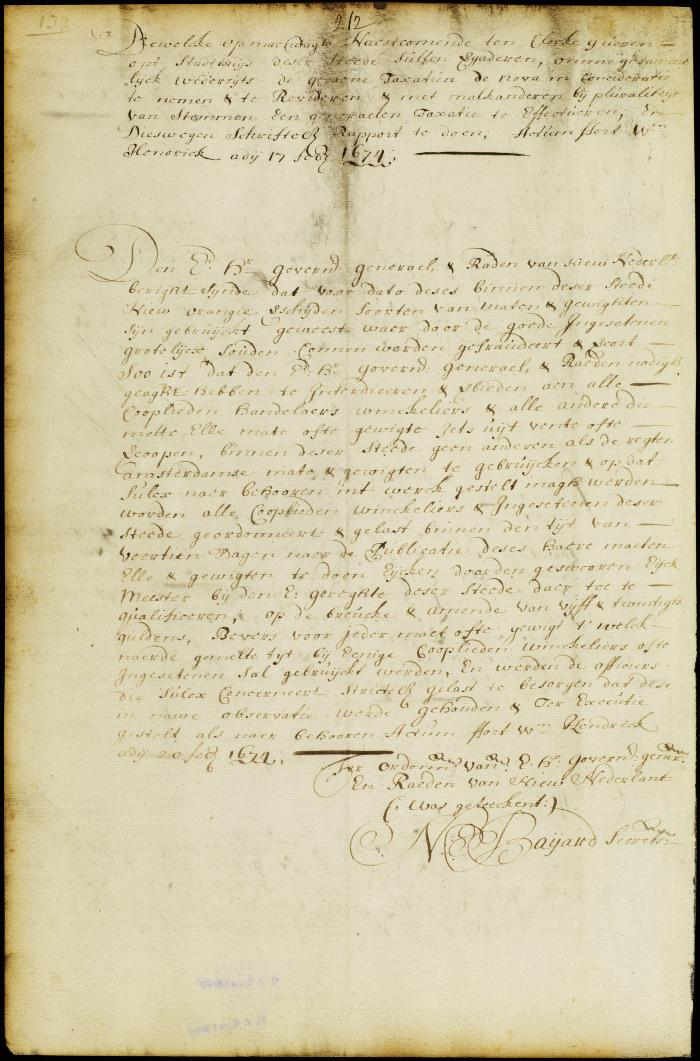 133
212
Dewelke op maendagh Naestcomende ten Clocke
opt Stadthuijs deser Steede sullen Ergaderen, omme gesament
lijck wederzyts de gedaene Taxatien de nova in Concideratie
te nemen & te Revideren & met malkanderen bij pluraliteijt
van Stemmen Een generaelen Taxatie te Effectueren, En
Dieswegen Schriftel Rapport te doen; Actum ffort Wm
Hendrick adij 17 feb 1674;
Den Ed: Hr governr generael, & Raden van Niew Nederlt
berigt synde dat voor dato deses binnen deser Steede
Niew orangie Eschijden Soorten van maten & gewighten
sijn gebruijckt geweest waer door de goede Ingesetenen
grotelijcx Souden Connen werden gefraudeert & Econt
Soo ist dat den Ed: Hr governr generael, & Raeden nodigh
geaght hebben te Interdiceren & Ebieden aen alle
Cooplieden Handelaers winckeliers & alle andere die
mette Elle mate ofte gewigte Iets uijt vente ofte
Ecoopen, binnen deser Steede geen anderen als de regten
Amsterdamse mate & gewigten te gebruijcken & op dat
Sulcx naer behooren int werck gestelt magh werden
worden alle Cooplieden winckeliers & Ingesetenen deser
Steede geordonneert & gelast binnen den tijt van
veertien Dagen naer de Publicatie deses haere maeten
Elle & gewigten te doen Eijcken door den geswooren Eijck
Meester bij den E: geregte deser Steede daer toe te
qualificeren, op de breucke & amende van vijff & twindigh
guldens, Bevers voor jeder maet ofte gewigt t'welck
naerde gemelte tyt bij Eenige Cooplieden winckeliers ofte
Ingesetenen Sal gebruijckt werden, En werden de officiers
die Sulcx Concerneert Strictel gelast te besorgen dat dese
in nauwe observatie werde gehouden & Ter Executie
gestelt als naer behooren Actum ffort Wm Hendrick
adij 20 feb 1674;
Ter ordonn: van E. Hr. Governr: gener:
En Raeden van Niew Nederlant
(: Was geteeckent:)
N: Baijard Secrets: